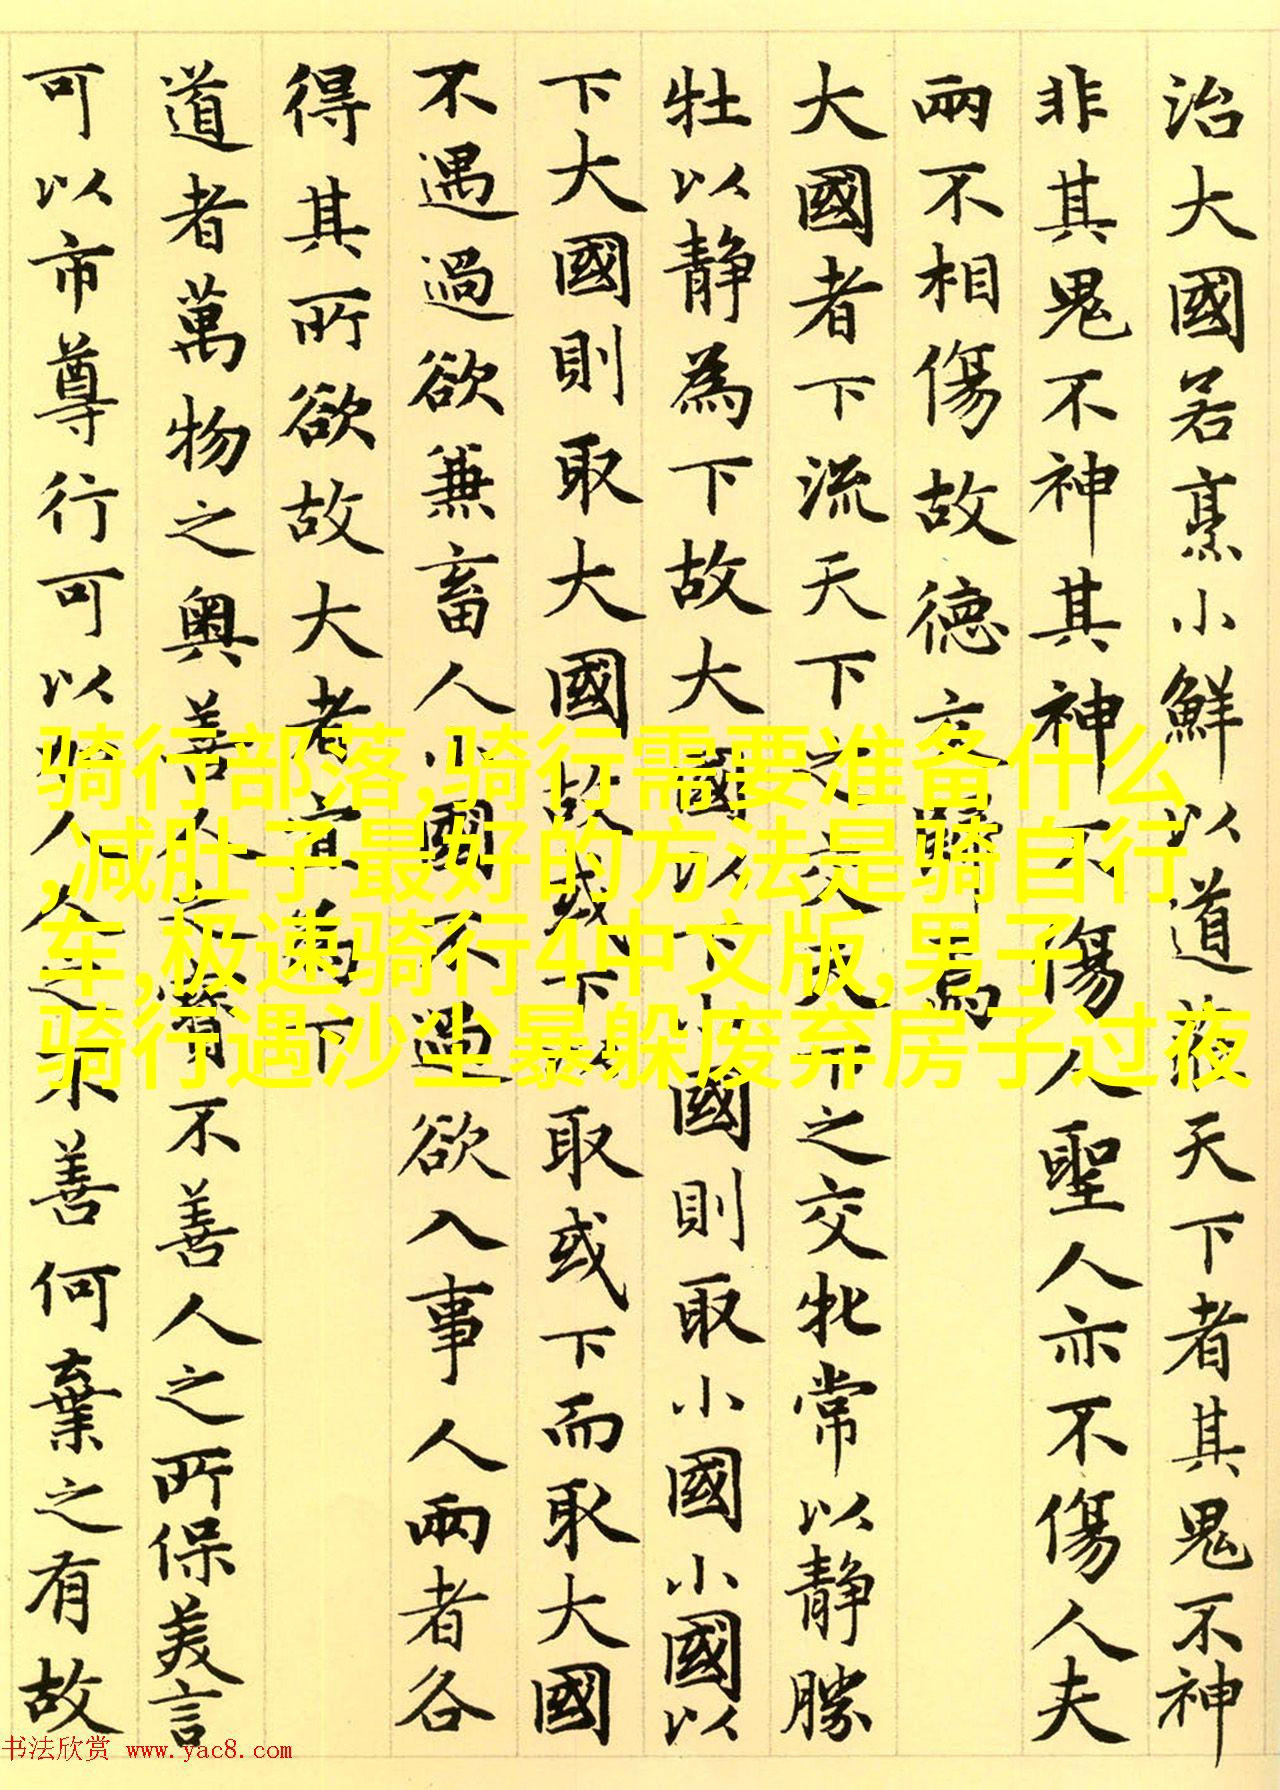 治大國若烹小鮮以道莅天下者其鬼不神
非其鬼不神其神不傷人聖人亦不傷人夫
兩不相傷故德交歸焉
大國者下流天下之交天下之交牝常以静勝
牡以静為下故大國以下小國則取小國小國以
下大國則取大國故或下以取或下而取大國
不遇過欲兼畜人小國不過欲入事人兩者各
得其所欲故大者宜為下
道者萬物之奥善人之寶不善人之所保美言
可以市尊行可以加人人之不善何棄之有故
骑行部落,骑行需要准备什么
,减肚子最好的方法是骑自行
车,极速骑行4中文版,男子
骑行遇沙尘暴躲废弃房子过夜
书法欣赏 www.yac8.com